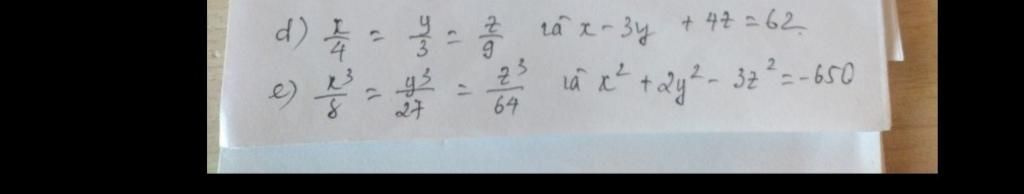 d) x/4 = y/3 = z/9 và x - 3y + 4z = 62.
e) x³/8 = y³/27 = z³/64 và x² + 2y² - 3z² = -650